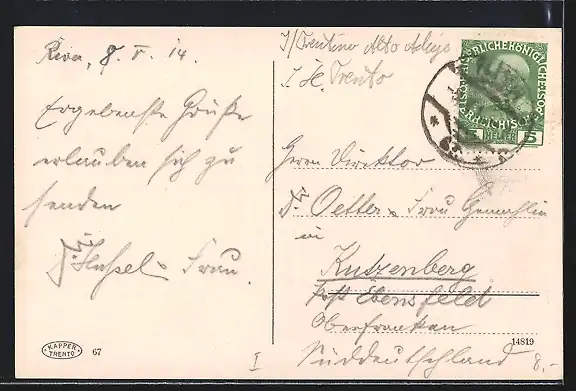 I/Trentino Alto Adige
I. H. Trento
Riva, 8. V. 14.
Ergebenste Grüße
erlauben sich zu
senden
Frau.
Herrn Direktor
Dr. Oetter u. Frau Gemahlin
in
Kutzenberg
Post Ebensfeld
Oberfranken
Süddeutschland
8.-
I
KAPPER
TRENTO
67
14819
5 HELLER 5